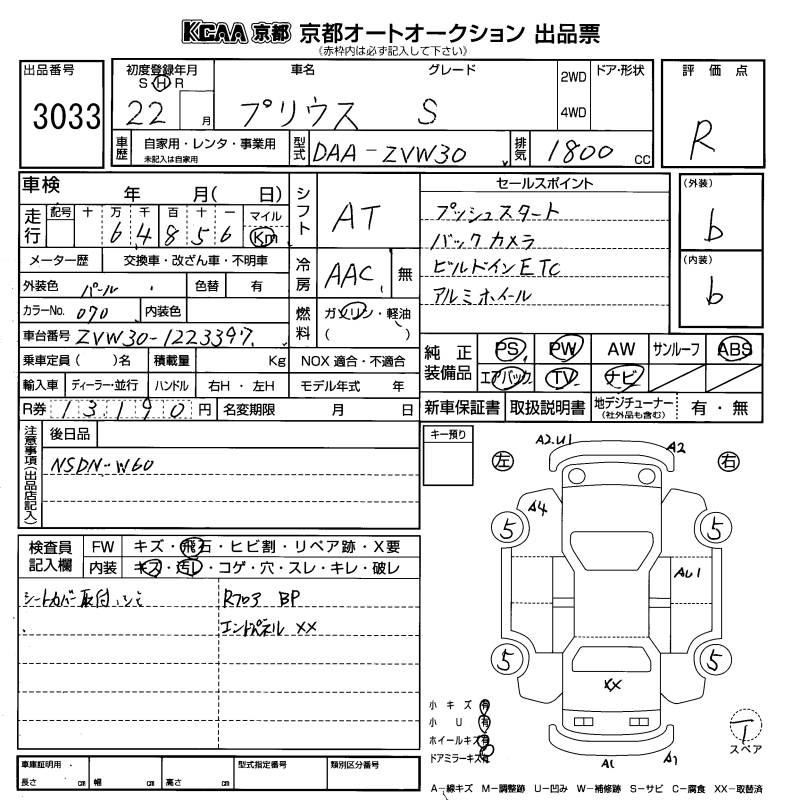 KCAA 京都 京都オートオークション 出品票
(赤枠内は必ず記入して下さい)
出品番号
3033
初度登録年月
S H R
22 月
車名 グレード
プリウス S
2WD
4WD
ドア・形状
評価点
R
車歴 自家用・レンタ・事業用
未記入は自家用
型式 DAA-ZVW30
排気 1800 CC
車検 年 月( 日)
走行 記号 十 万 千 百 十 一 マイル
6 4 8 5 6 Km
シフト AT
メーター歴 交換車・改ざん車・不明車
外装色 パール 色替 有
冷房 AAC 無
カラーNo. 070 内装色
燃料 ガソリン・軽油
( )
車台番号 ZVW30-1223397
乗車定員 ( )名 積載量 Kg NOX 適合・不適合
輸入車 ディーラー・並行 ハンドル 右H・左H モデル年式 年
R券 13190円 名変期限 月 日
セールスポイント
プッシュスタート
バックカメラ
ビルドインETC
アルミホイール
(外装)
b
(内装)
b
純正装備品 PS PW AW サンルーフ ABS
エアバック TV ナビ
新車保証書 取扱説明書 地デジチューナー
(社外品も含む) 有・無
注意事項(出品店記入)
後日品
NSDN-W60
キー預り
左 右
A2.U1 A2
A4
5 5
AU1
5 5
XX
A1 A1
検査員記入欄 FW キズ・飛石・ヒビ割・リペア跡・X要
内装 キズ・汚レ・コゲ・穴・スレ・キレ・破レ
シートカバー取付シミ
R703 BP
エンドパネル XX
小キズ 有
小U 有
ホイールキズ 有
ドアミラーキズ 有
T
スペア
車庫証明用
長さ cm 幅 cm 高さ cm
型式指定番号 類別区分番号
A-線キズ M-調整跡 U-凹み W-補修跡 S-サビ C-腐食 XX-取替済